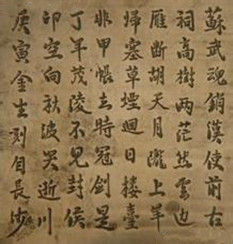 蘇武魂銷漢使前古
祠高樹兩茫然雲邊
雁斷胡天月隴上羊
歸塞草煙迴日樓臺
非甲帳去時冠劍是
丁年茂陵不見封侯
印空向秋波哭逝川
庚寅金生刻長沙